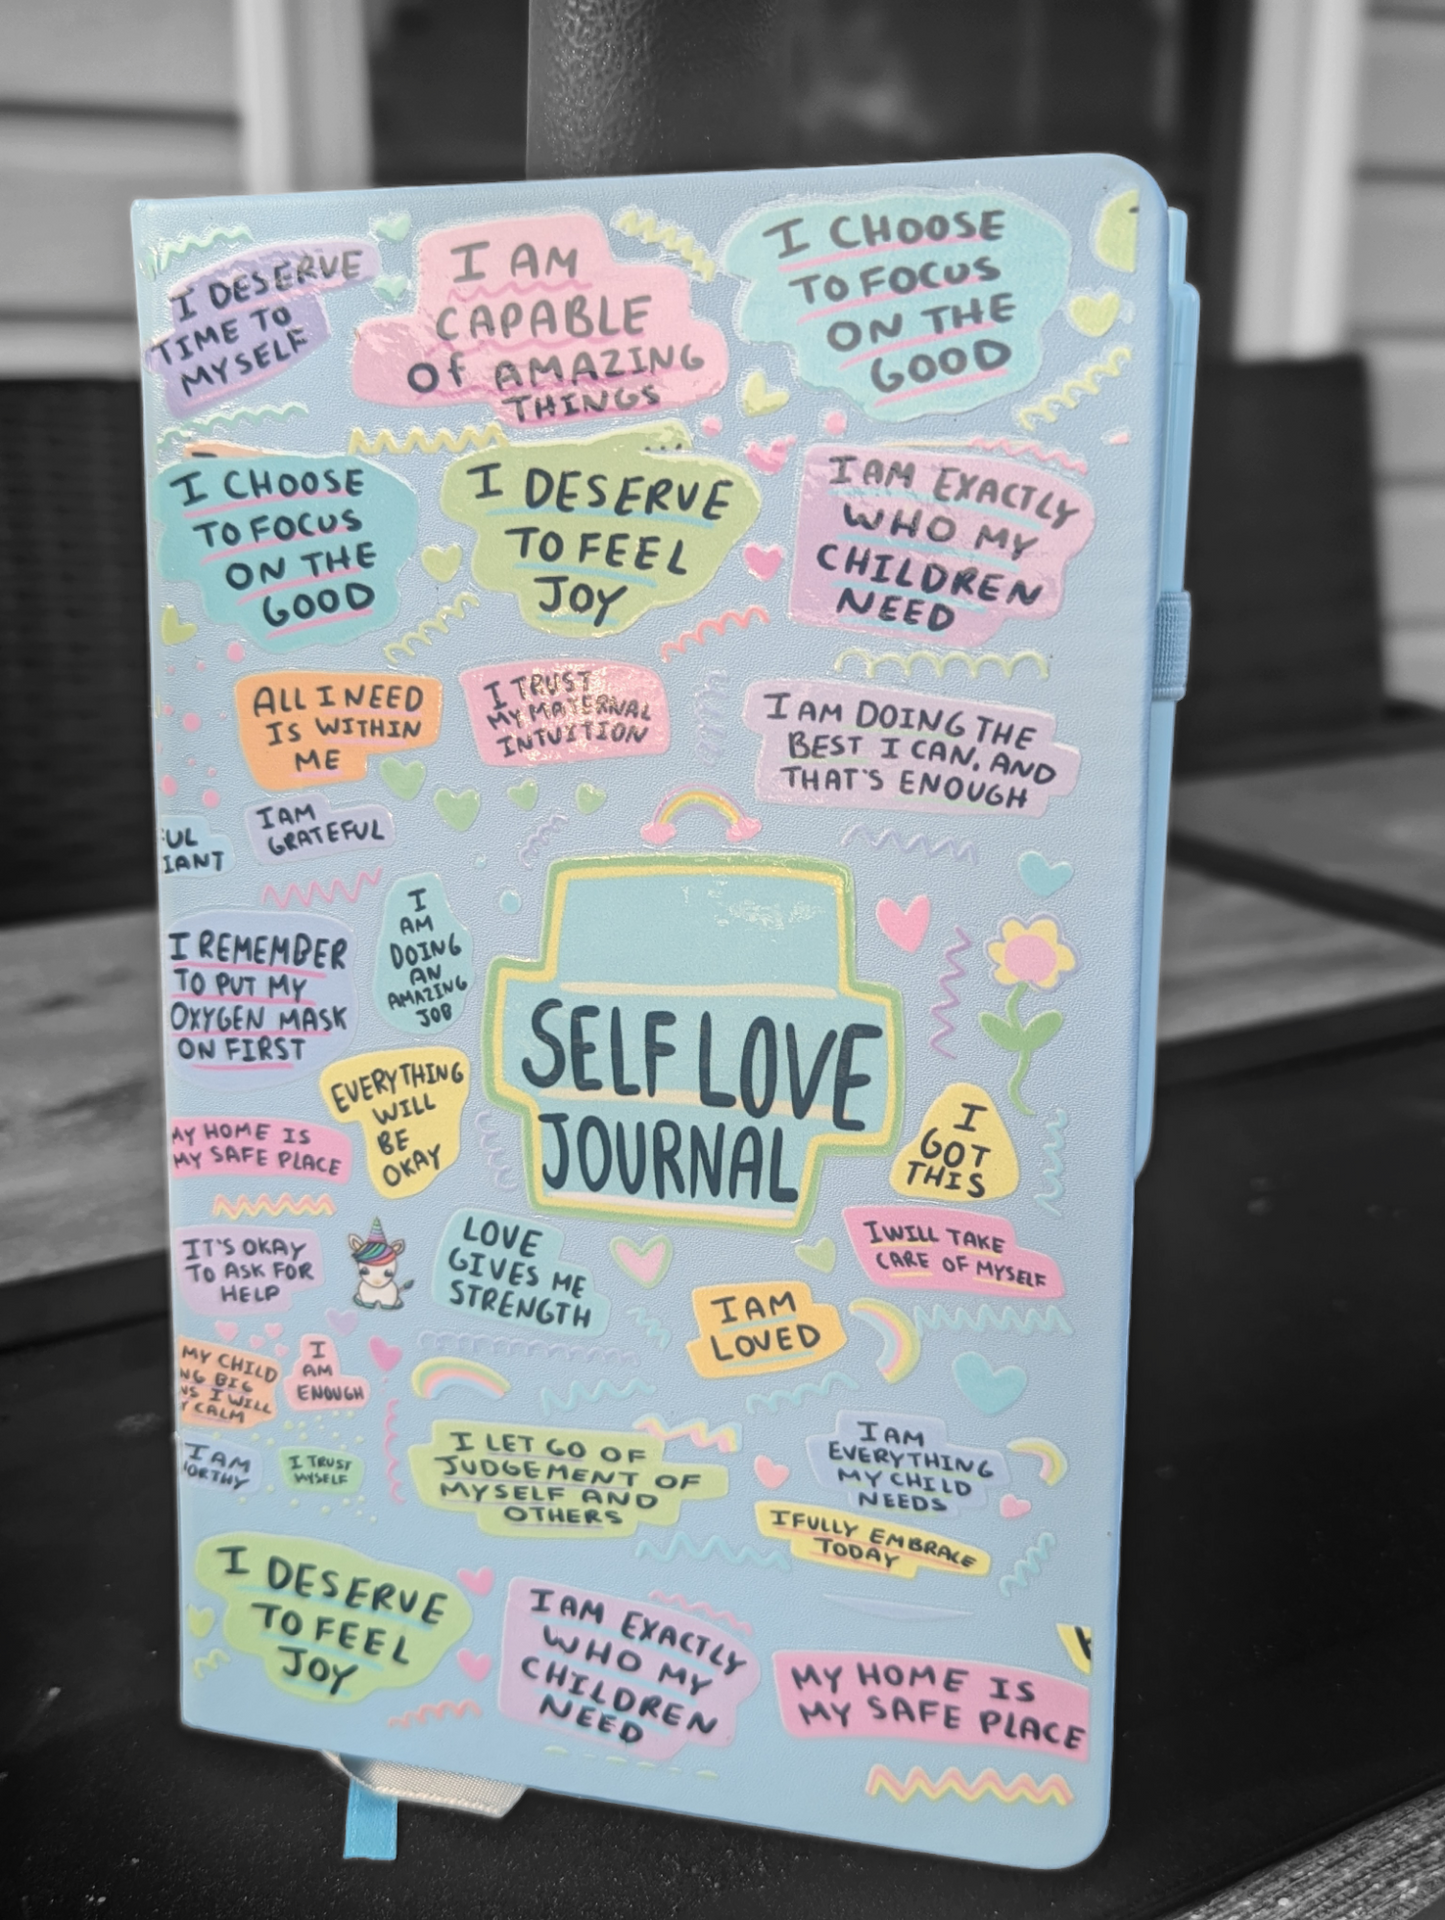 I DESERVE
TIME TO
MYSELF
I AM
CAPABLE
Of AMAZING
THINGS
I CHOOSE
TO FOCUS
ON THE
GOOD
I CHOOSE
TO FOCUS
ON THE
GOOD
I DESERVE
TO FEEL
JOY
I AM EXACTLY
WHO MY
CHILDREN
NEED
ALL I NEED
IS WITHIN
ME
I TRUST
MY MATERNAL
INTUITION
I AM DOING THE
BEST I CAN, AND
THAT'S ENOUGH
UL
IANT
I AM
GRATEFUL
I REMEMBER
TO PUT MY
OXYGEN MASK
ON FIRST
I
AM
DOING
AN
AMAZING
JOB
SELF LOVE
JOURNAL
EVERYTHING
WILL
BE
OKAY
I
GOT
THIS
MY HOME IS
MY SAFE PLACE
IT'S OKAY
TO ASK FOR
HELP
LOVE
GIVES ME
STRENGTH
I WILL TAKE
CARE OF MYSELF
I AM
LOVED
MY CHILD
NG BIG
NS I WILL
Y CALM
I
AM
ENOUGH
I AM
ORTHY
I TRUST
MYSELF
I LET GO OF
JUDGEMENT OF
MYSELF AND
OTHERS
I AM
EVERYTHING
MY CHILD
NEEDS
I FULLY EMBRACE
TODAY
I DESERVE
TO FEEL
JOY
I AM EXACTLY
WHO MY
CHILDREN
NEED
MY HOME IS
MY SAFE PLACE